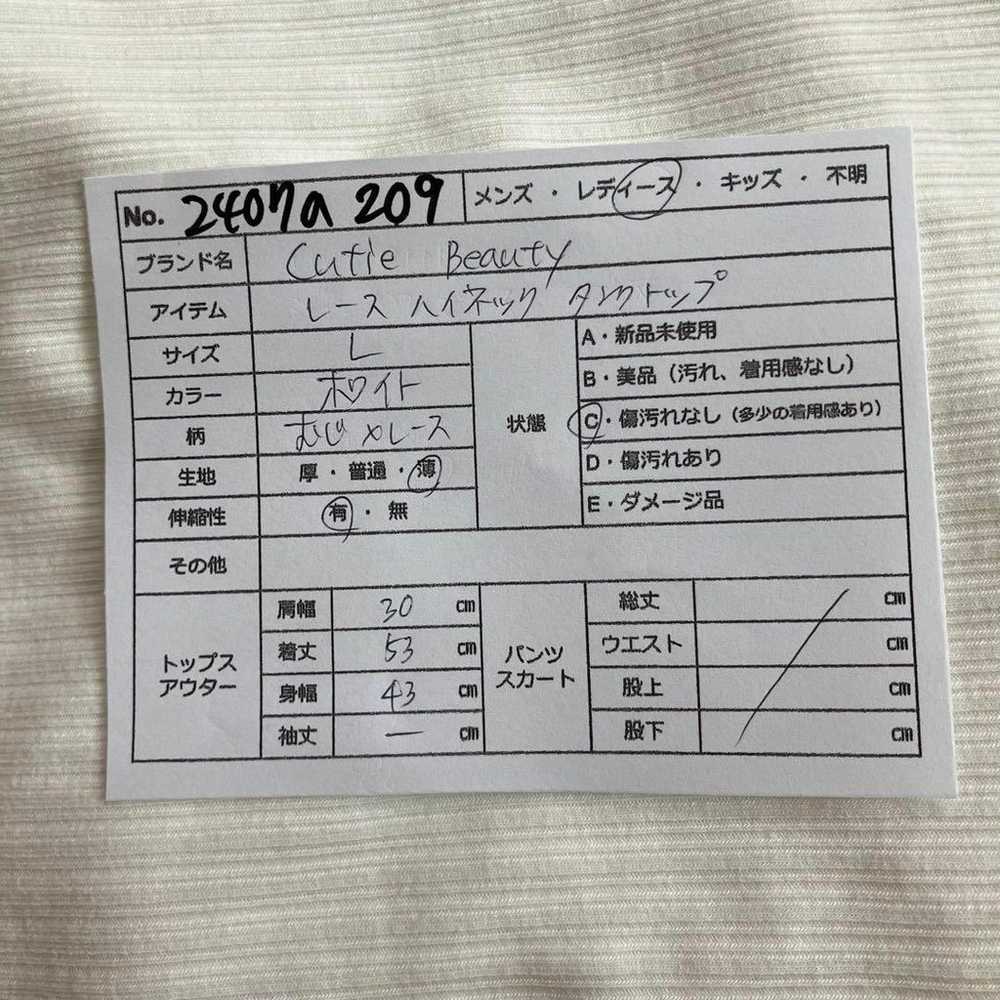 No. 2407a 209 メンズ ・ レディース ・ キッズ ・ 不明
ブランド名 Cutie Beauty
アイテム レース ハイネック タンクトップ
サイズ L
カラー ホワイト
柄 むじ×レース
生地 厚・普通・薄
伸縮性 有・無
状態
A・新品未使用
B・美品（汚れ、着用感なし）
C・傷汚れなし（多少の着用感あり）
D・傷汚れあり
E・ダメージ品
その他
トップス
アウター
肩幅 30 cm
着丈 53 cm
身幅 43 cm
袖丈 ー cm
パンツ
スカート
総丈 cm
ウエスト cm
股上 cm
股下 cm